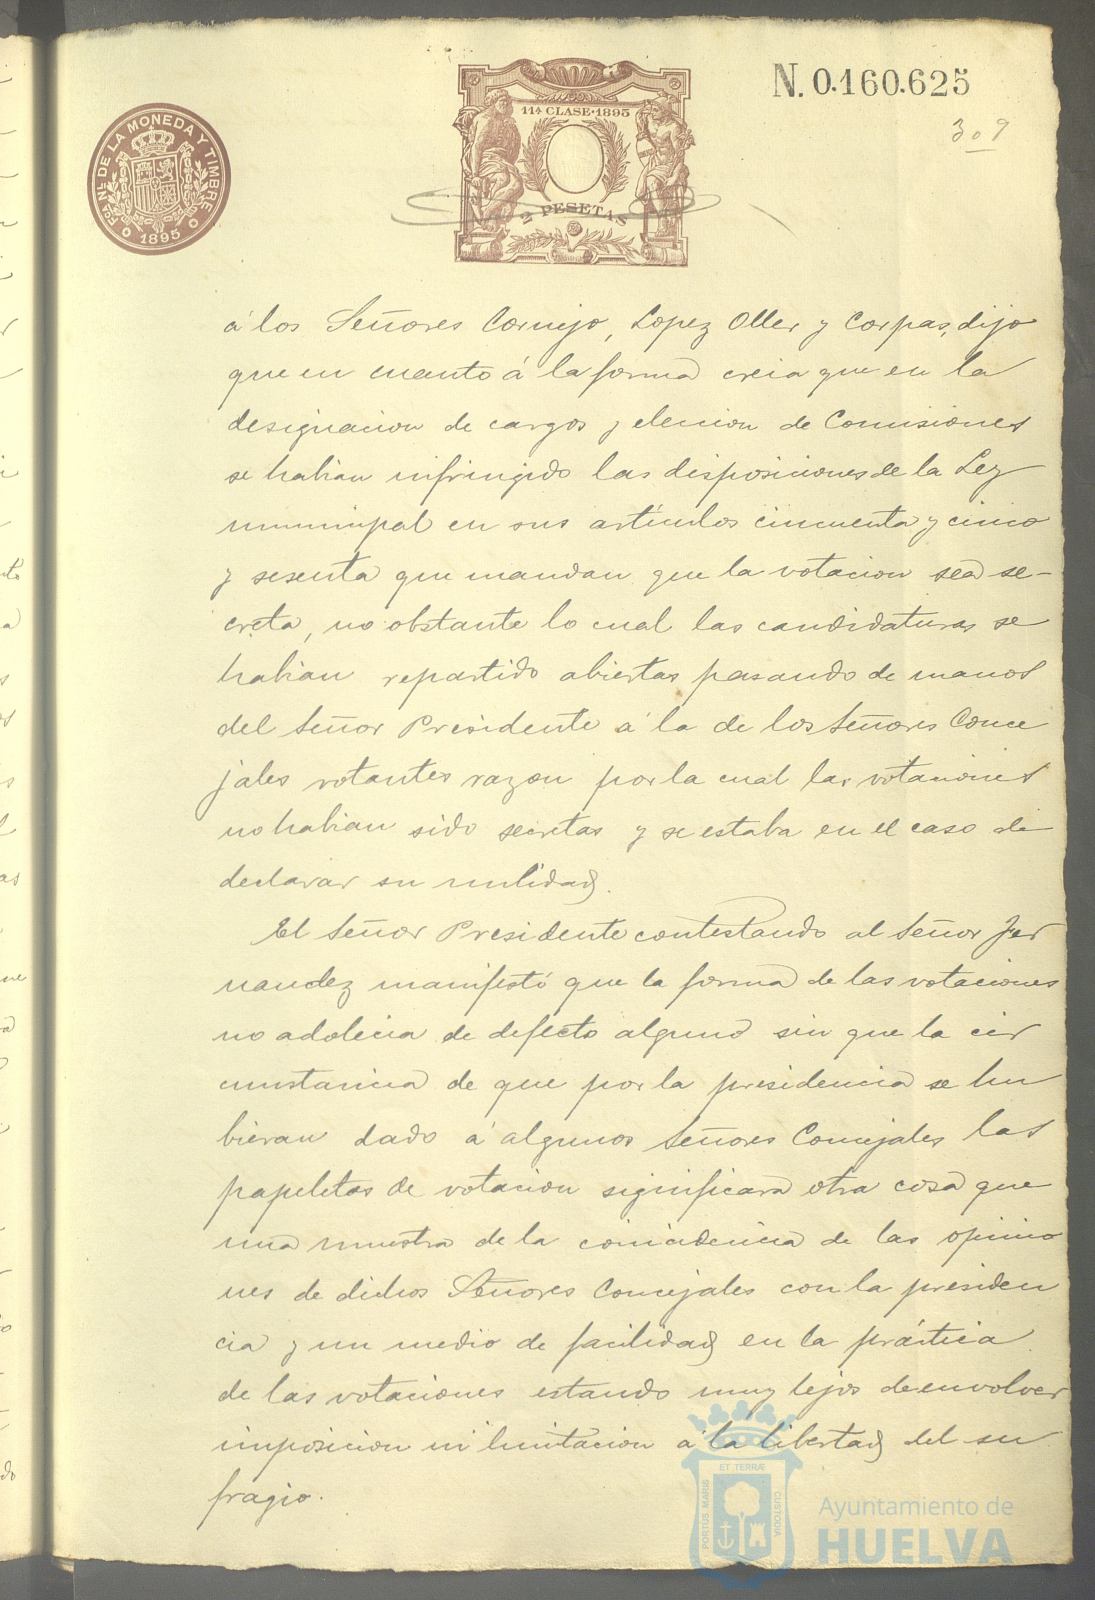 N. 0.160.625
309
11ª CLASE·1895
2 PESETAS
Fca. Nl. DE LA MONEDA Y TIMBRE
1895
á los Señores Cornejo, Lopez Oller y Corpas, dijo
que en cuanto á la forma creia que en la
designacion de cargos y eleccion de Comisiones
se habian infringido las disposiciones de la Ley
municipal en sus artículos cincuenta y cinco
y sesenta que mandan que la votacion sea se-
creta, no obstante lo cual las candidaturas se
habian repartido abiertas pasando de manos
del Señor Presidente á la de los Señores Conce
jales votantes razon por la cual las votaciones
no habian sido secretas y se estaba en el caso de
declarar su nulidad.
El Señor Presidente contestando al Señor Fer
nandez manifestó que la forma de las votaciones
no adolecia de defecto alguno sin que la cir
cunstancia de que por la presidencia se hu
bieran dado á algunos Señores Concejales las
papeletas de votacion significara otra cosa que
una muestra de la coincidencia de las opinio
nes de dichos Señores Concejales con la presiden
cia y un medio de facilidad en la práctica
de las votaciones estando muy lejos de envolver
imposicion ni limitacion á la libertad del su
fragio.
PORTUS MARIS
ET TERRÆ
CUSTODIA
Ayuntamiento de
HUELVA